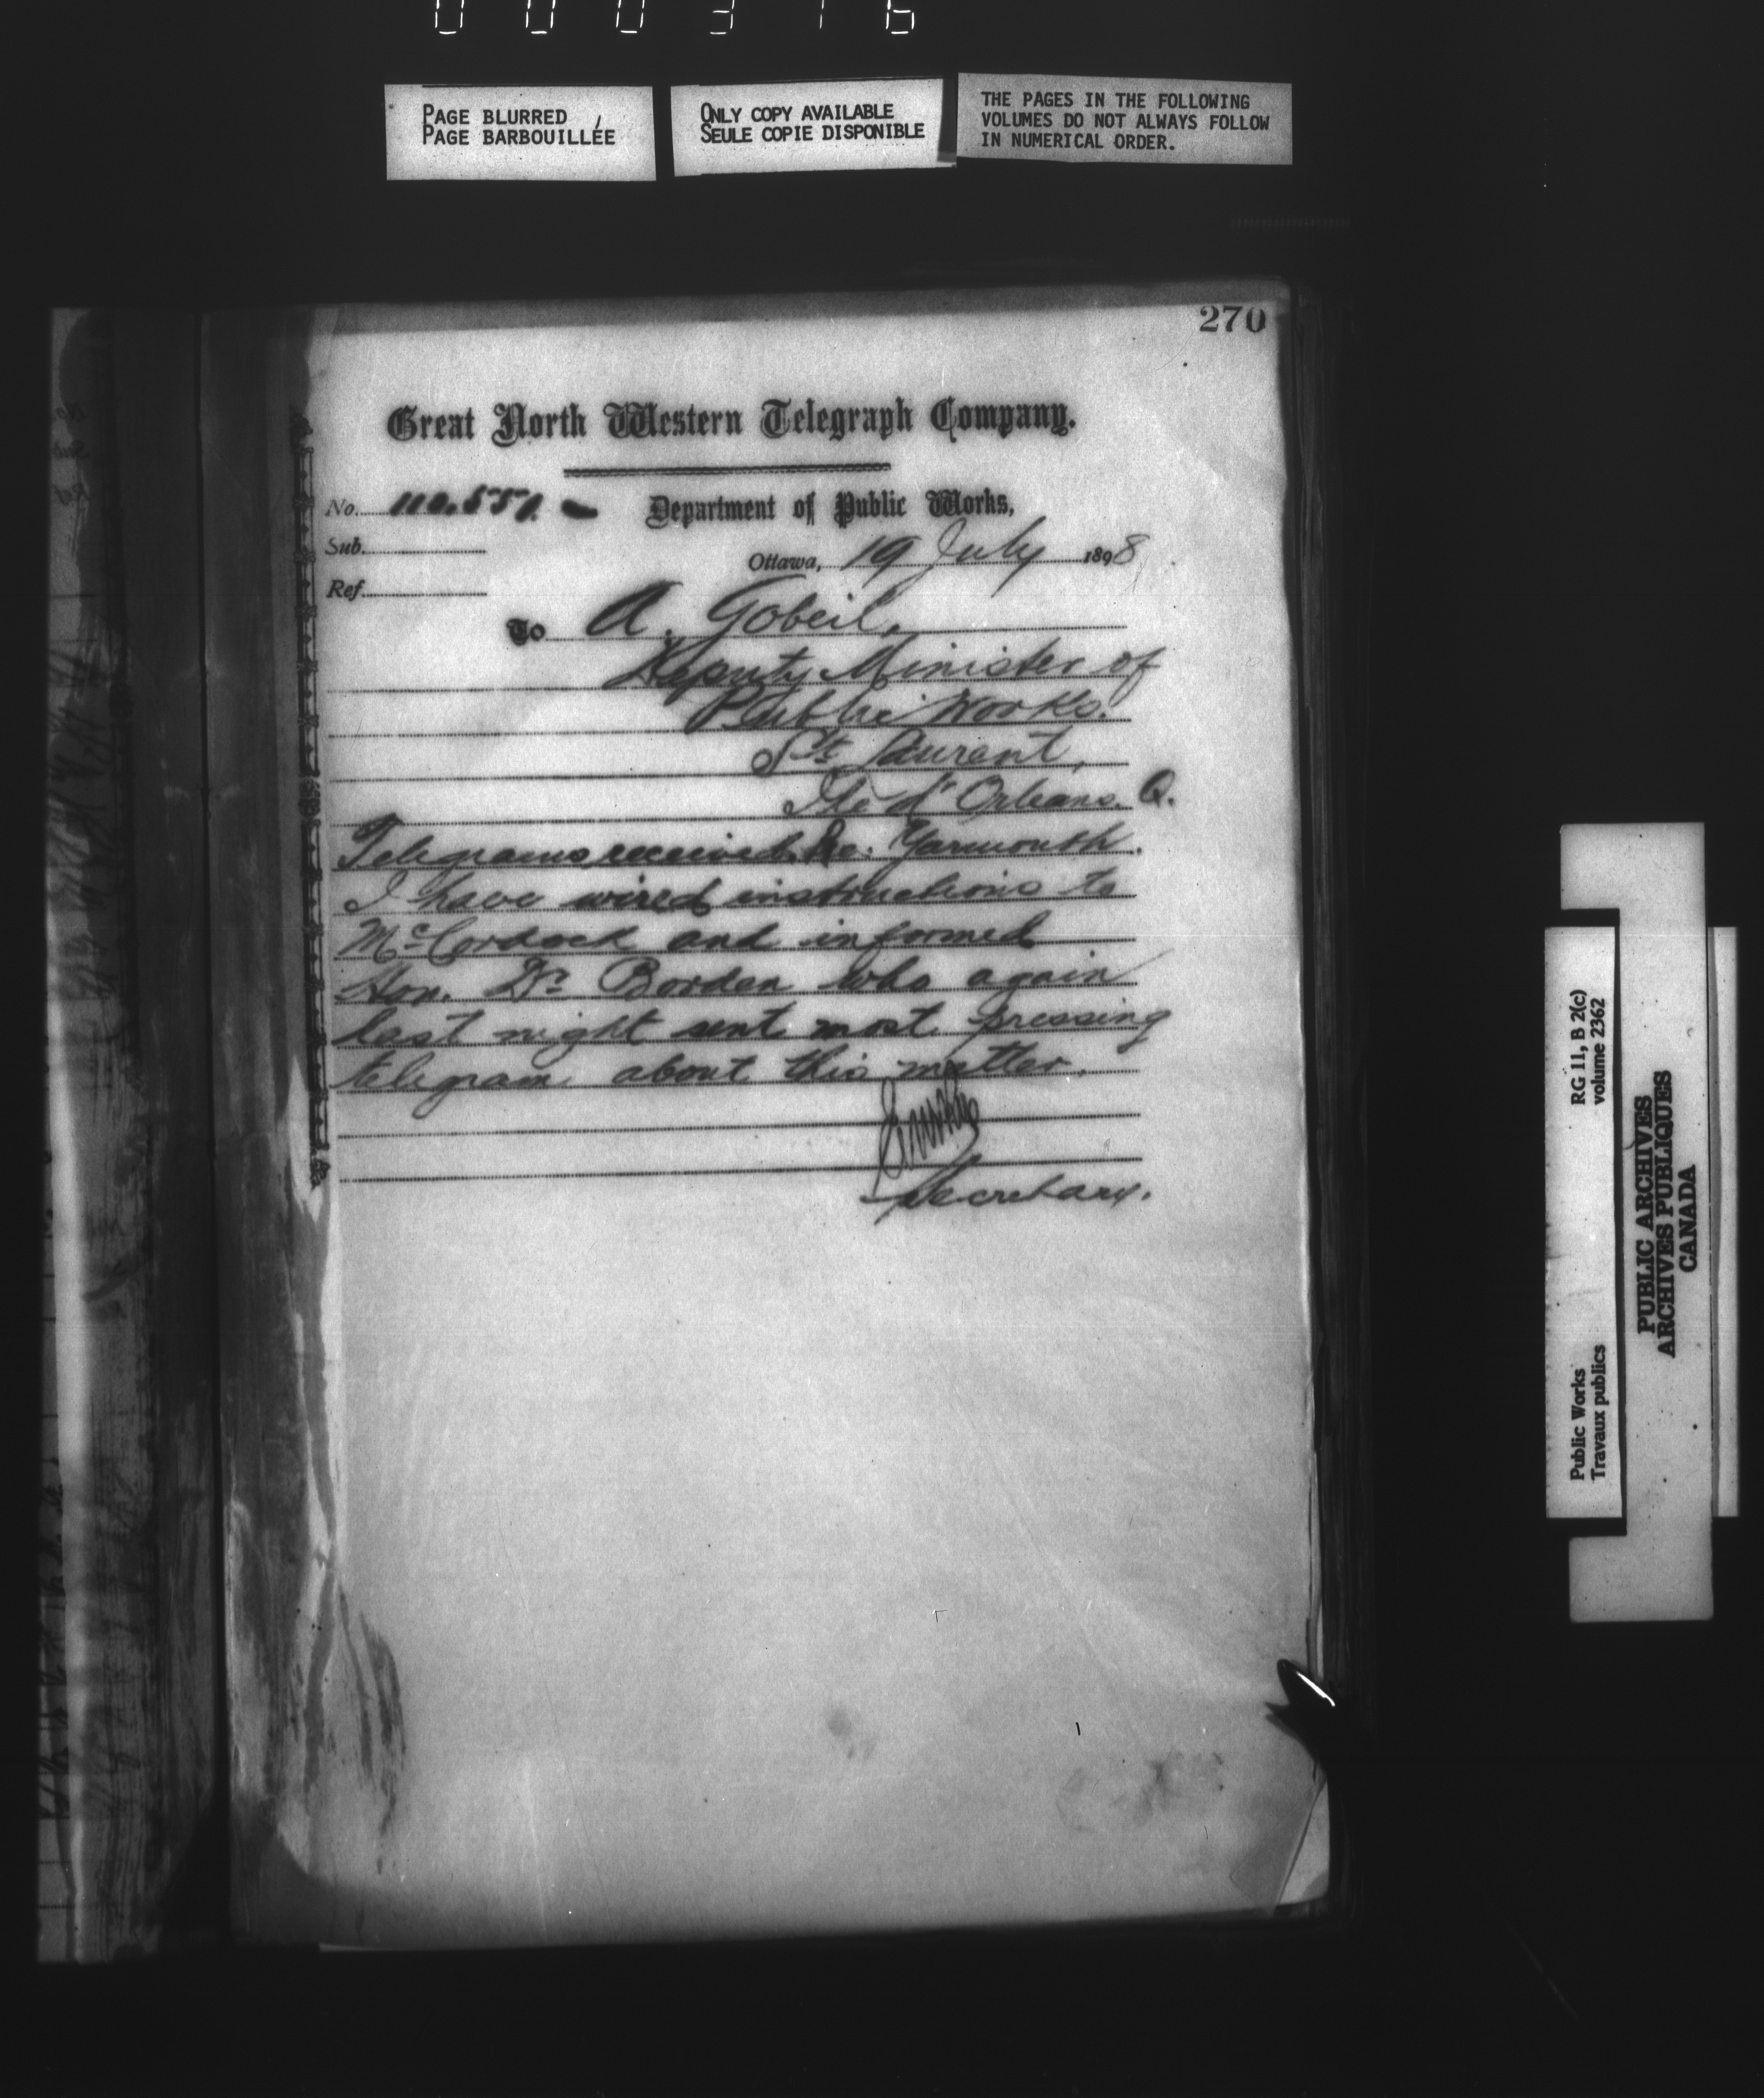 000316
PAGE BLURRED
PAGE BARBOUILLÉE
ONLY COPY AVAILABLE
SEULE COPIE DISPONIBLE
THE PAGES IN THE FOLLOWING
VOLUMES DO NOT ALWAYS FOLLOW
IN NUMERICAL ORDER.
270
Great North Western Telegraph Company.
No. 110.551.
Department of Public Works,
Sub.
Ottawa, 19 July 1898
Ref.
To A. Gobeil,
Deputy Minister of
Public Works.
St. Laurent,
Ile d'Orleans. Q.
Telegrams received Re: Yarmouth.
I have wired instructions to
McCordock and informed
Hon. Dr Borden who again
last night sent most pressing
telegram about this matter.
Secretary.
Public Works
Travaux publics
RG 11, B 2(c)
volume 2362
PUBLIC ARCHIVES
ARCHIVES PUBLIQUES
CANADA